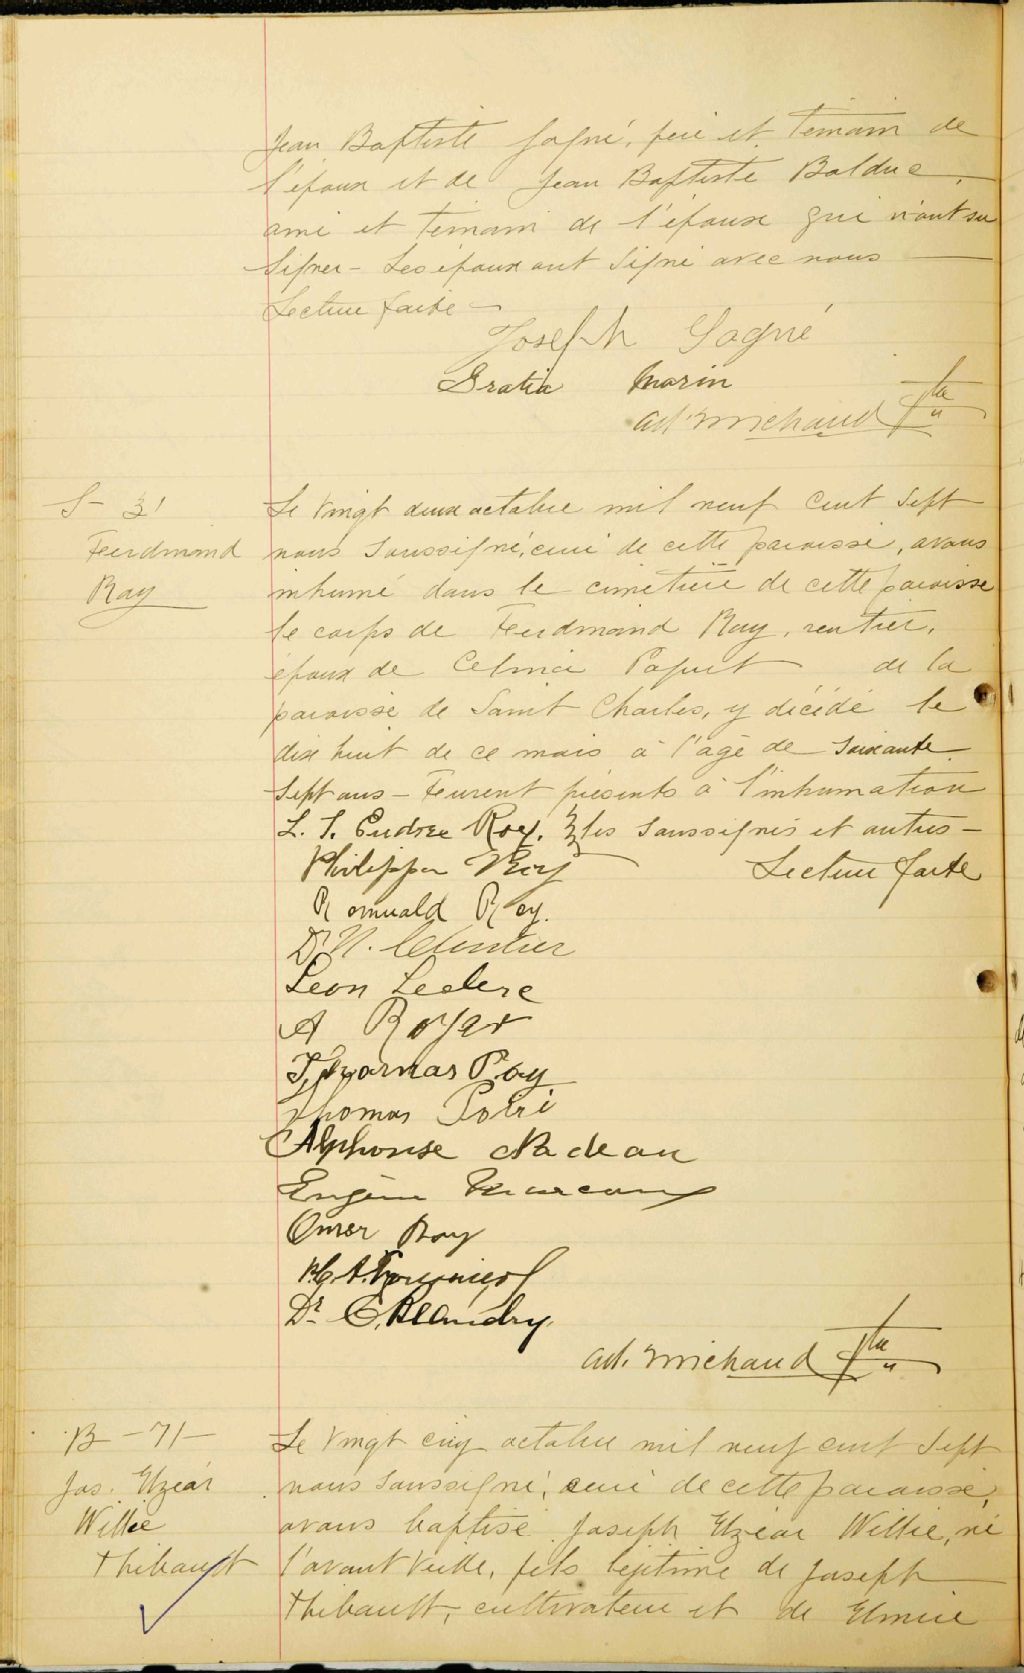 Jean Baptiste Gagné, père et témoin de
l'époux et de Jean Baptiste Bolduc,
ami et témoin de l'épouse qui n'ont su
signer - Les époux ont signé avec nous
Lecture faite -
Joseph Gagné
Gratia Morin
Ad. Michaud Ptre
S - 31
Ferdinand
Roy
Le vingt deux octobre mil neuf cent sept
nous soussigné, curé de cette paroisse, avons
inhumé dans le cimetière de cette paroisse
le corps de Ferdinand Roy, rentier,
époux de Celina Paquet de la
paroisse de Saint Charles, y décédé le
dix huit de ce mois à l'âge de soixante
sept ans - Furent présents à l'inhumation
L. S. Eudore Roy. les soussignés et autres -
Philippe Roy Lecture faite
Romuald Roy.
Dr N.
Léon Leclerc
A Royer
Thomas Roy
Thomas Poiré
Alphonse Nadeau
Eugène Marcoux
Omer Roy
Fournier
Dr C. R. Landry
Ad. Michaud Ptre
B - 71 -
Jos. Elzéar
Willie
Thibault
Le vingt cinq octobre mil neuf cent sept
nous soussigné, curé de cette paroisse,
avons baptisé Joseph Elzéar Willie, né
l'avant veille, fils légitime de Joseph
Thibault, cultivateur et de Elmire